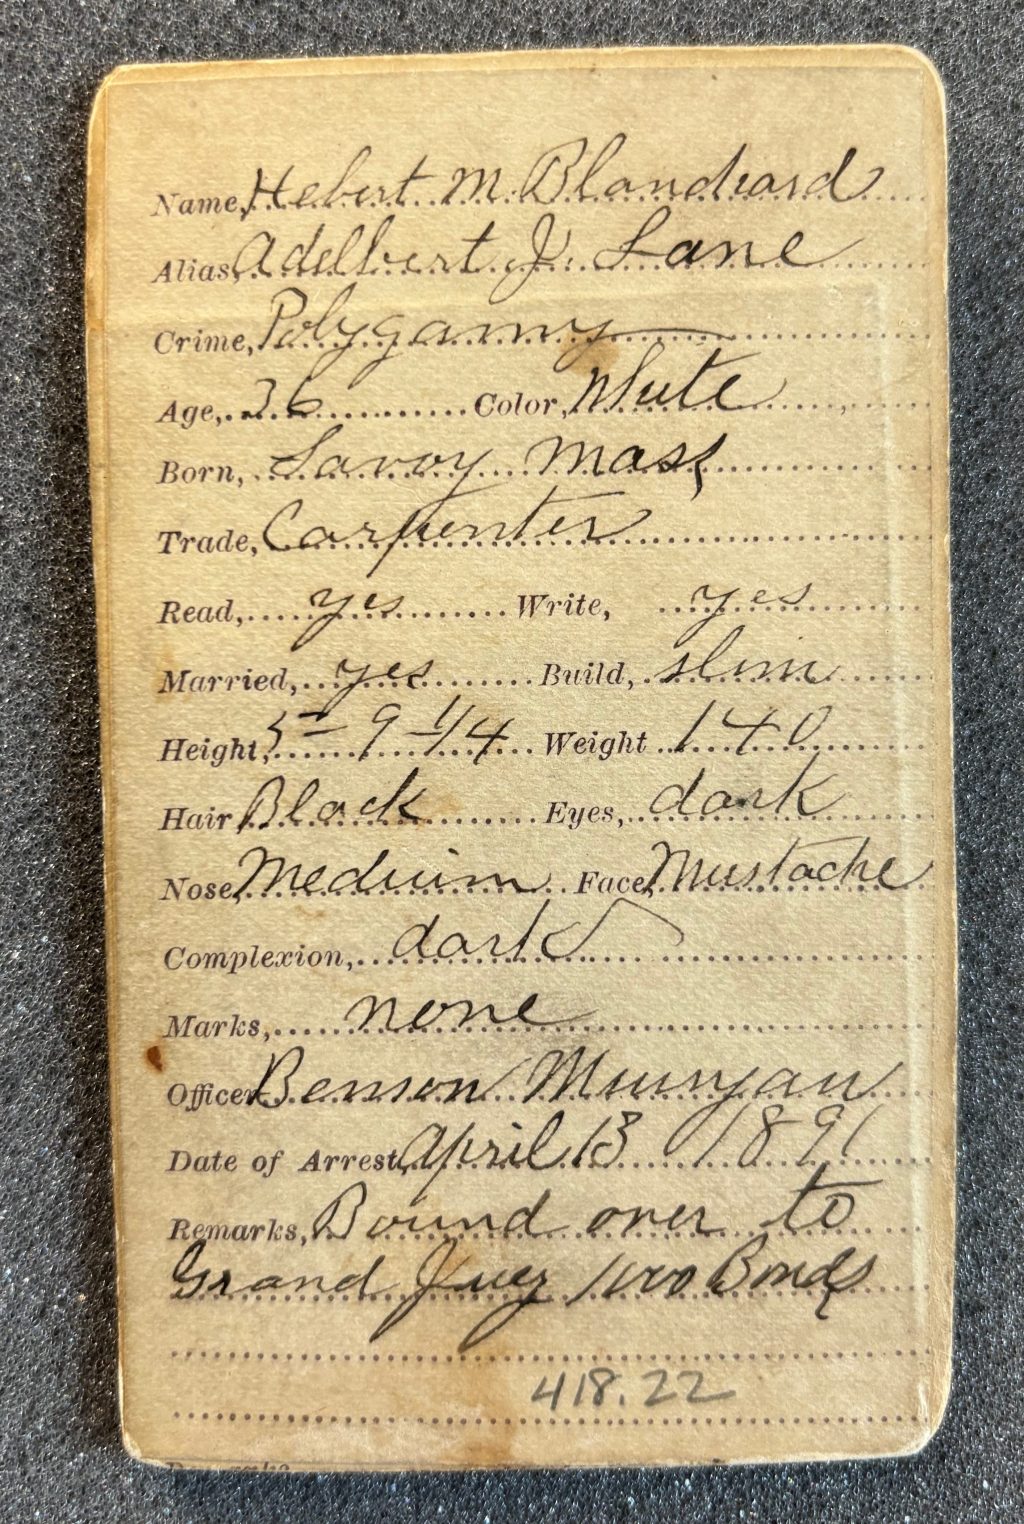 Name, Hebert M. Blanchard
Alias, Adelbert J. Lane
Crime, Polygamy
Age, 36 Color, White
Born, Savoy Mass
Trade, Carpenter
Read, yes Write, yes
Married, yes Build, slim
Height, 5-9 1/4 Weight 140
Hair Black Eyes, dark
Nose, Medium Face, Mustache
Complexion, dark
Marks, none
Officer Benson Munyan
Date of Arrest, April 13 1891
Remarks, Bound over to
Grand Jury 1000 Bonds
418.22